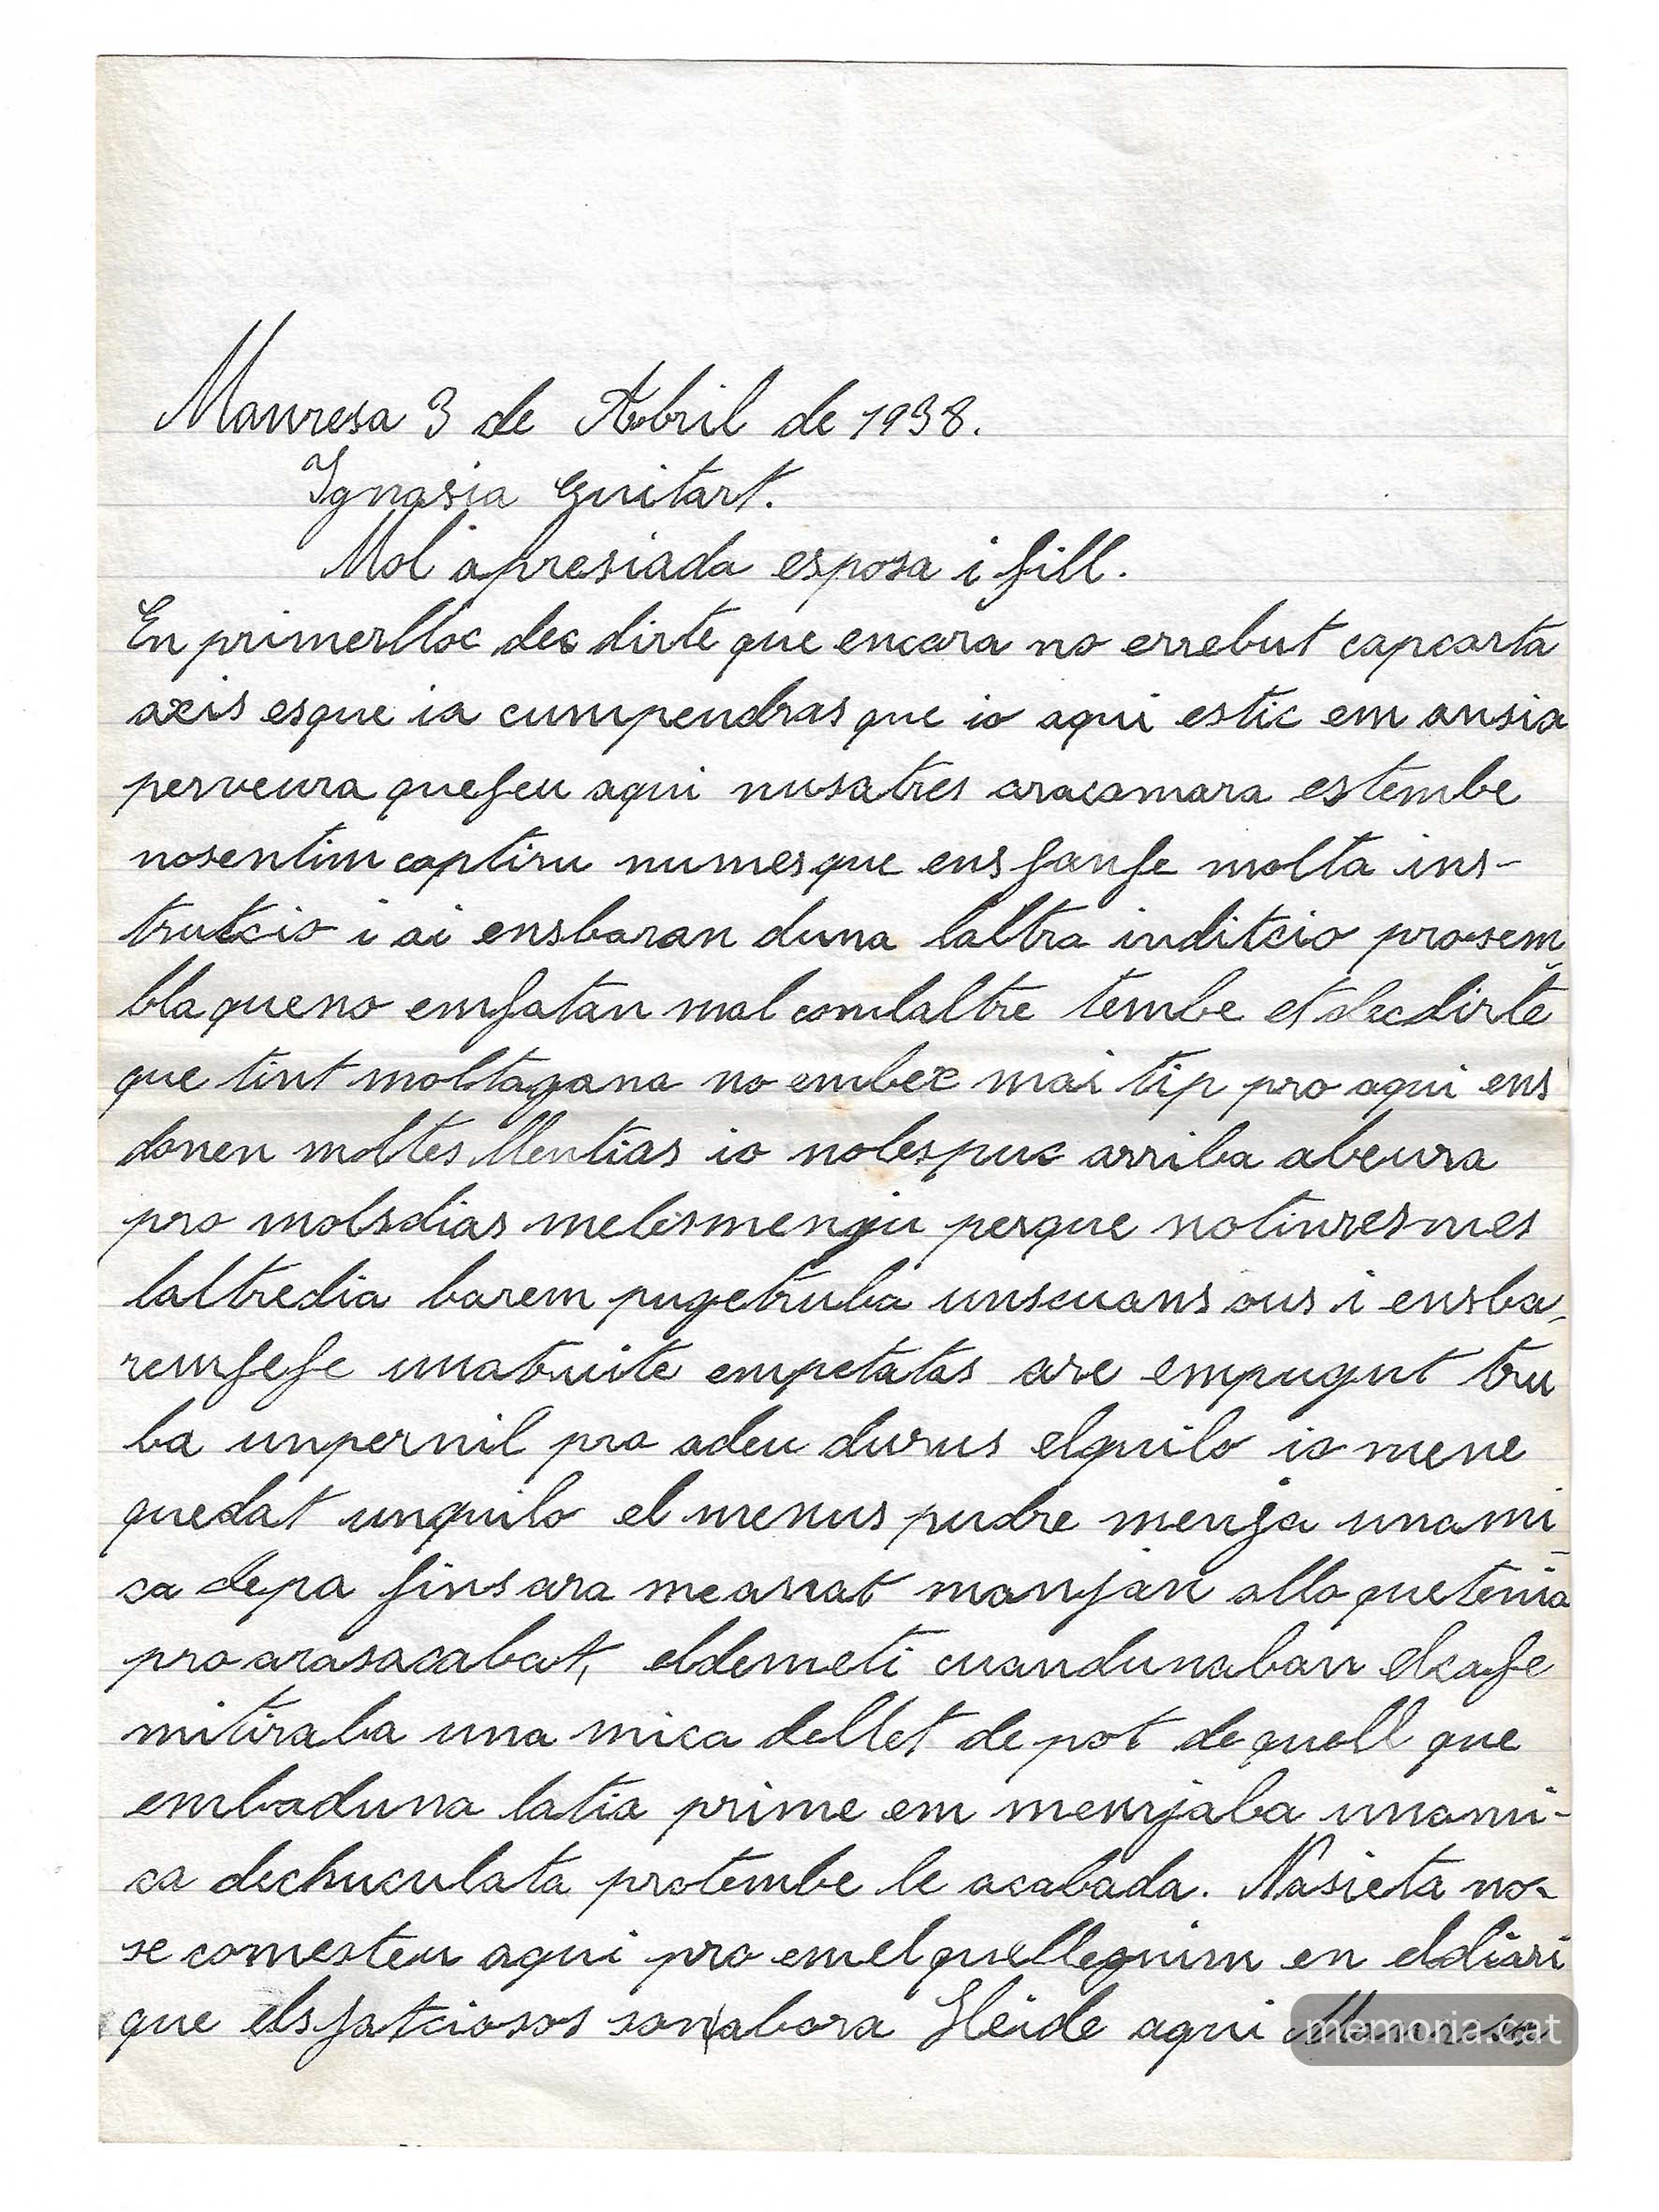 Manresa 3 de Abril de 1938.
Ignasia Guitart.
Mol apresiada esposa i fill.
En primerlloc dec dirte que encara no errebut capcarta
axis esque ia cumpendras que io aqui estic em ansia
perveura quefeu aqui nusatres aracamara estembe
nosentim captiru numesque ens fanfe molta ins-
trutcio i ai ensbaran duna laltra inditcio prosem
bla queno emfatan mal comlaltre tembe et dec dirte
que tint moltagana no embec mai tip pro aqui ens
donen moltes llentias io nolespuc arriba abeura
pro molsdias melesmenju perque notinresmes
laltredia barem pugetruba unscuans ous i ensba,
remfefe unatruite empetatas are empugut tru
ba unpernil pro adeu durus elquilo io mene
quedat unquilo el menus pudre menja unami
ca depa finsara meanat manjan allo quetenia
pro arasacabat, eldemeti cuandunaban elcafe
mitiraba una mica dellet de pot de quell que
embaduna latia prime em menjaba unami-
ca dechuculata protembe le acabada. Nasieta no-
se comesteu aqui pro emelquelleguim en eldiari
que elsfatciosos son abora Lleide aqui Manresa
memoria.cat